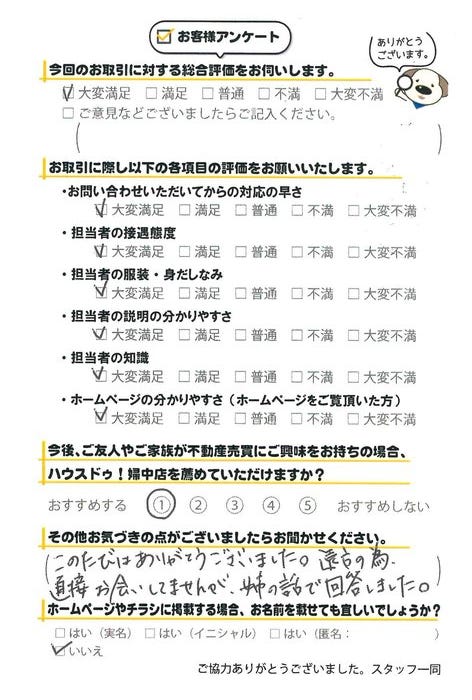 お客様アンケート
ありがとう
ございます。
今回のお取引に対する総合評価をお伺いします。
☑ 大変満足 □ 満足 □ 普通 □ 不満 □ 大変不満
□ ご意見などございましたらご記入ください。
お取引に際し以下の各項目の評価をお願いいたします。
・お問い合わせいただいてからの対応の早さ
☑ 大変満足 □ 満足 □ 普通 □ 不満 □ 大変不満
・担当者の接遇態度
☑ 大変満足 □ 満足 □ 普通 □ 不満 □ 大変不満
・担当者の服装・身だしなみ
☑ 大変満足 □ 満足 □ 普通 □ 不満 □ 大変不満
・担当者の説明の分かりやすさ
☑ 大変満足 □ 満足 □ 普通 □ 不満 □ 大変不満
・担当者の知識
☑ 大変満足 □ 満足 □ 普通 □ 不満 □ 大変不満
・ホームページの分かりやすさ（ホームページをご覧頂いた方）
☑ 大変満足 □ 満足 □ 普通 □ 不満 □ 大変不満
今後、ご友人やご家族が不動産売買にご興味をお持ちの場合、
ハウスドゥ！婦中店を薦めていただけますか？
おすすめする ① ② ③ ④ ⑤ おすすめしない
その他お気づきの点がございましたらお聞かせください。
このたびはありがとうございました。遠方の為、
直接お会いしてませんが、姉の話で回答しました。
ホームページやチラシに掲載する場合、お名前を載せても宜しいでしょうか？
□ はい（実名） □ はい（イニシャル） □ はい（匿名： ）
☑ いいえ
ご協力ありがとうございました。スタッフ一同